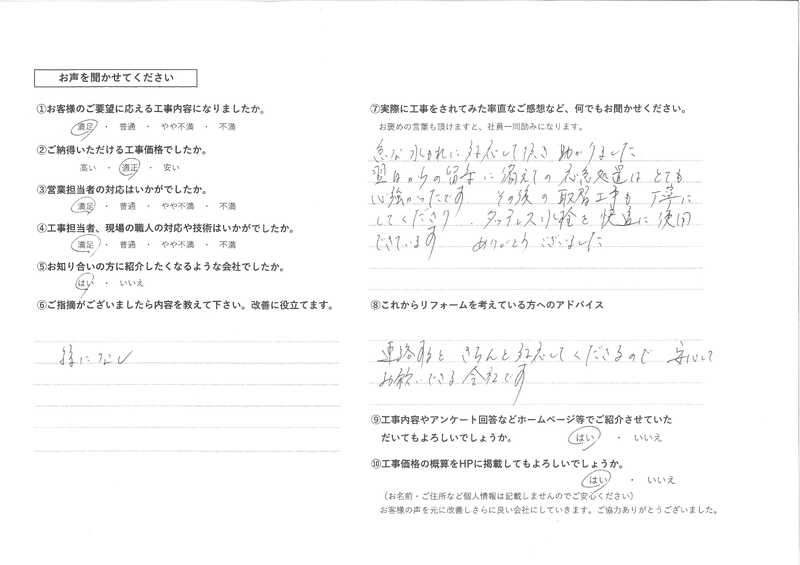 お声を聞かせてください
①お客様のご要望に応える工事内容になりましたか。
満足 ・ 普通 ・ やや不満 ・ 不満
②ご納得いただける工事価格でしたか。
高い ・ 適正 ・ 安い
③営業担当者の対応はいかがでしたか。
満足 ・ 普通 ・ やや不満 ・ 不満
④工事担当者、現場の職人の対応や技術はいかがでしたか。
満足 ・ 普通 ・ やや不満 ・ 不満
⑤お知り合いの方に紹介したくなるような会社でしたか。
はい ・ いいえ
⑥ご指摘がございましたら内容を教えて下さい。改善に役立てます。
特になし
⑦実際に工事をされてみた率直なご感想など、何でもお聞かせください。
お褒めの言葉も頂けますと、社員一同励みになります。
急な水もれに対応して頂き 助かりました
翌日からの留守に備えての応急処置はとても
心強かったです その後の取替工事も丁寧に
してくださり、タッチレス水栓を快適に使用
できています ありがとうございました
⑧これからリフォームを考えている方へのアドバイス
連絡すると きちんと対応してくださるので 安心して
お願いできる会社です
⑨工事内容やアンケート回答などホームページ等でご紹介させていた
だいてもよろしいでしょうか。 はい ・ いいえ
⑩工事価格の概算をHPに掲載してもよろしいでしょうか。
はい ・ いいえ
（お名前・ご住所など個人情報は記載しませんのでご安心ください）
お客様の声を元に改善しさらに良い会社にしていきます。ご協力ありがとうございました。